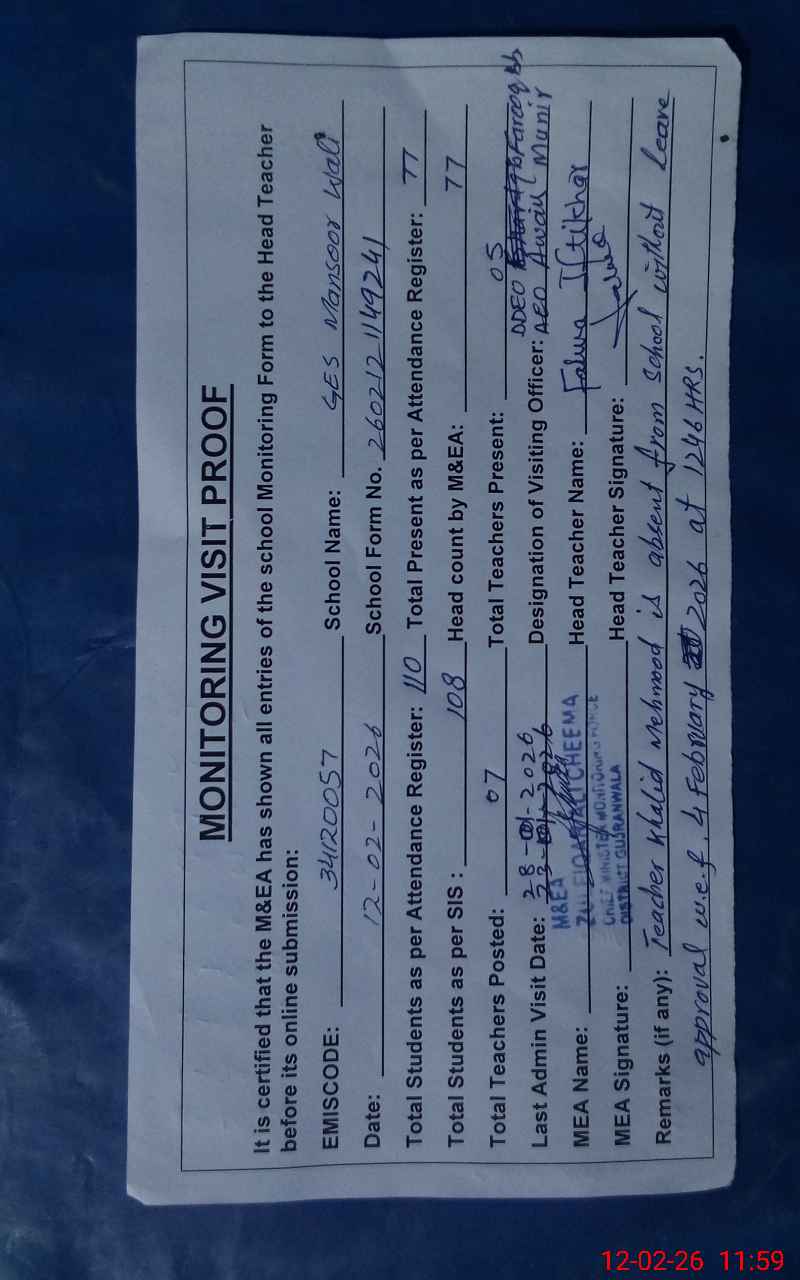 MONITORING VISIT PROOF
It is certified that the M&EA has shown all entries of the school Monitoring Form to the Head Teacher
before its online submission:
EMISCODE: 34120057 School Name: GES Mansoor Wali
Date: 12-02-2026 School Form No. 260212 1149241
Total Students as per Attendance Register: 110 Total Present as per Attendance Register: 77
Total Students as per SIS : 108 Head count by M&EA: 77
Total Teachers Posted: 07 Total Teachers Present: 05
DDEO Farooq
Last Admin Visit Date: 28-01-2026 Designation of Visiting Officer: AEO Awais Munir
M&EA
MEA Name: CHEEMA Head Teacher Name: Iftikhar
CHIEF MINISTER MONITORING FORCE
DISTRICT GUJRANWALA
MEA Signature: Head Teacher Signature:
Remarks (if any): Teacher Khalid Mehmood is absent from School without Leave
approval w.e.f. 4 February 2026 at 1246 HRS.
12-02-26 11:59